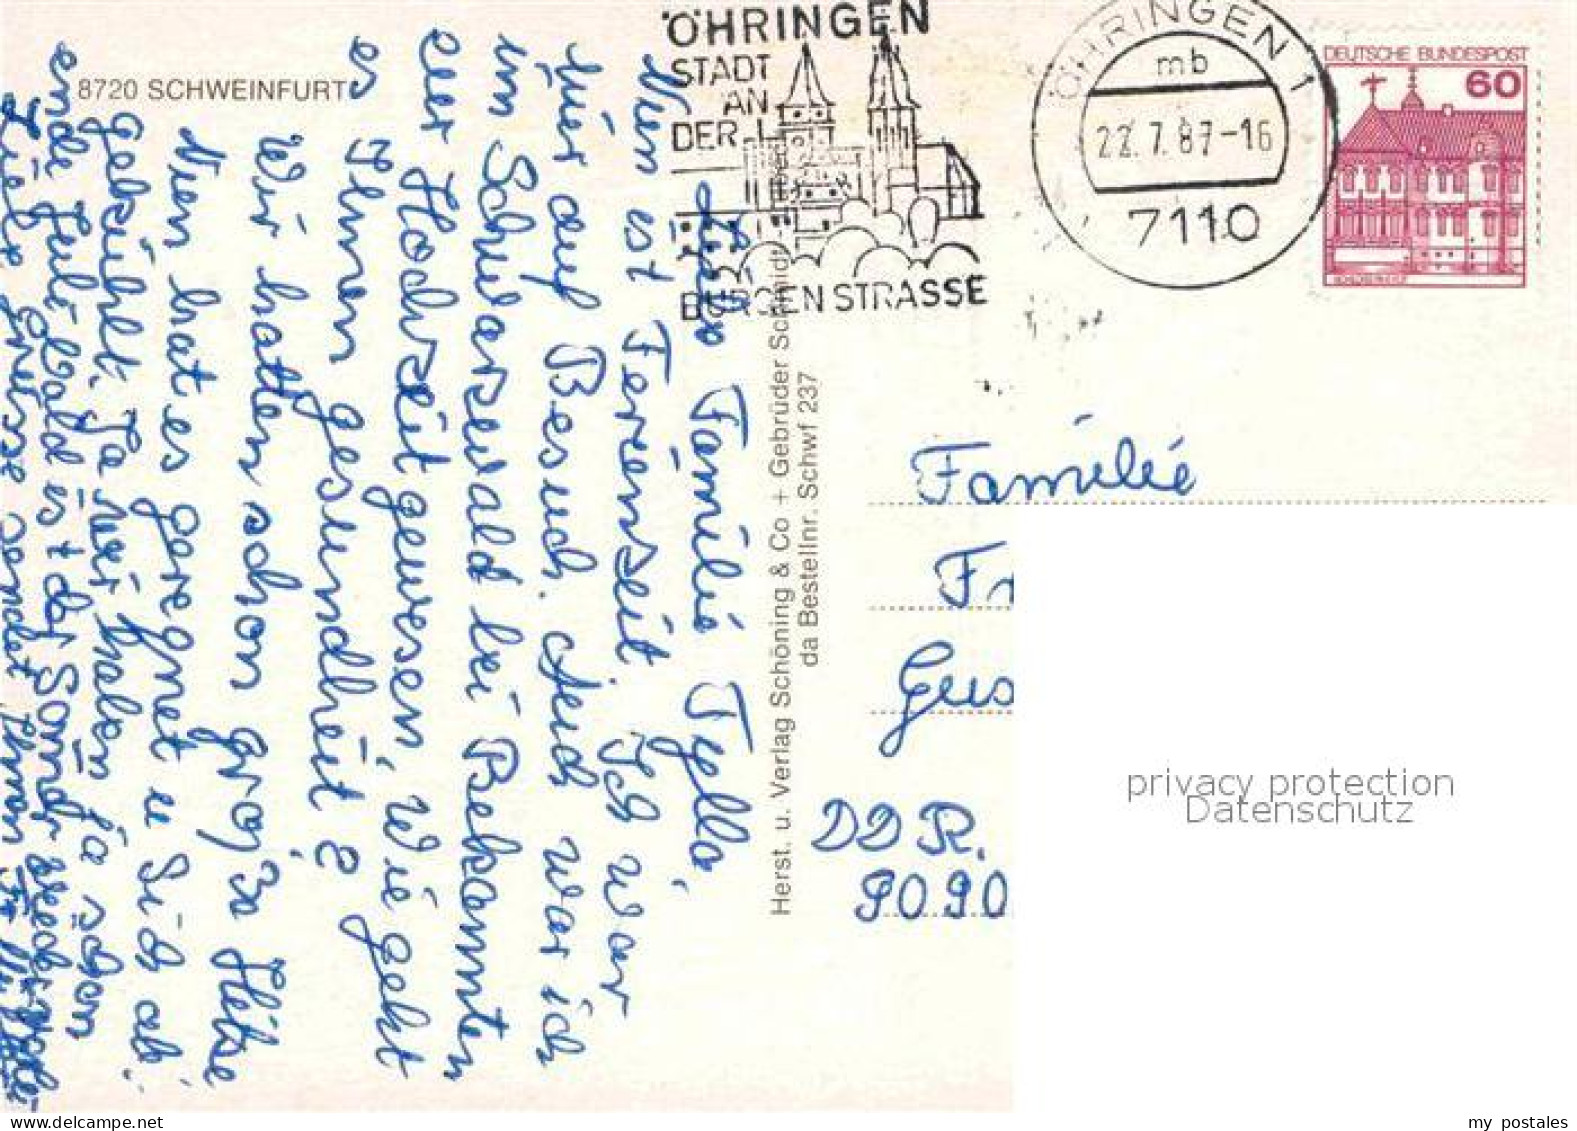 8720 SCHWEINFURT
ÖHRINGEN
STADT
AN
DER
BURGENSTRASSE
ÖHRINGEN 1
mb
22.7.87-16
7110
DEUTSCHE BUNDESPOST
60
Liebe Familie Tylla,
Nun ist Ferienzeit. Ich war
hier auf Besuch. Auch war ich
im Schwarzwald bei Bekannten
der Hochzeit gewesen, Wie geht
es Ihnen gesundheit?
Wir hatten schon große Hitze
Nun hat es geregnet u sich ab-
gekühlt. Ja wir haben ja schon
ende Juli bald ist der Sommer
Liebe Grüsse sendet Ihnen
Herst. u. Verlag Schöning & Co + Gebrüder Schmidt
da Bestellnr. Schwf 237
Familie
Fr
Gus
DDR.
9090
privacy protection
Datenschutz
my postales